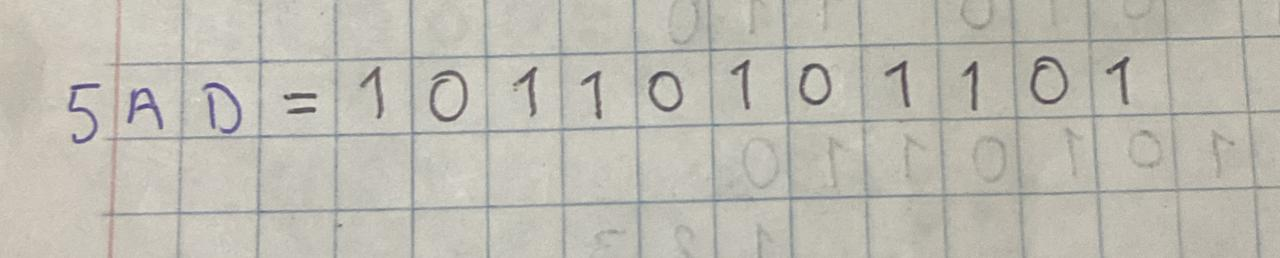 5AD = 10110101101